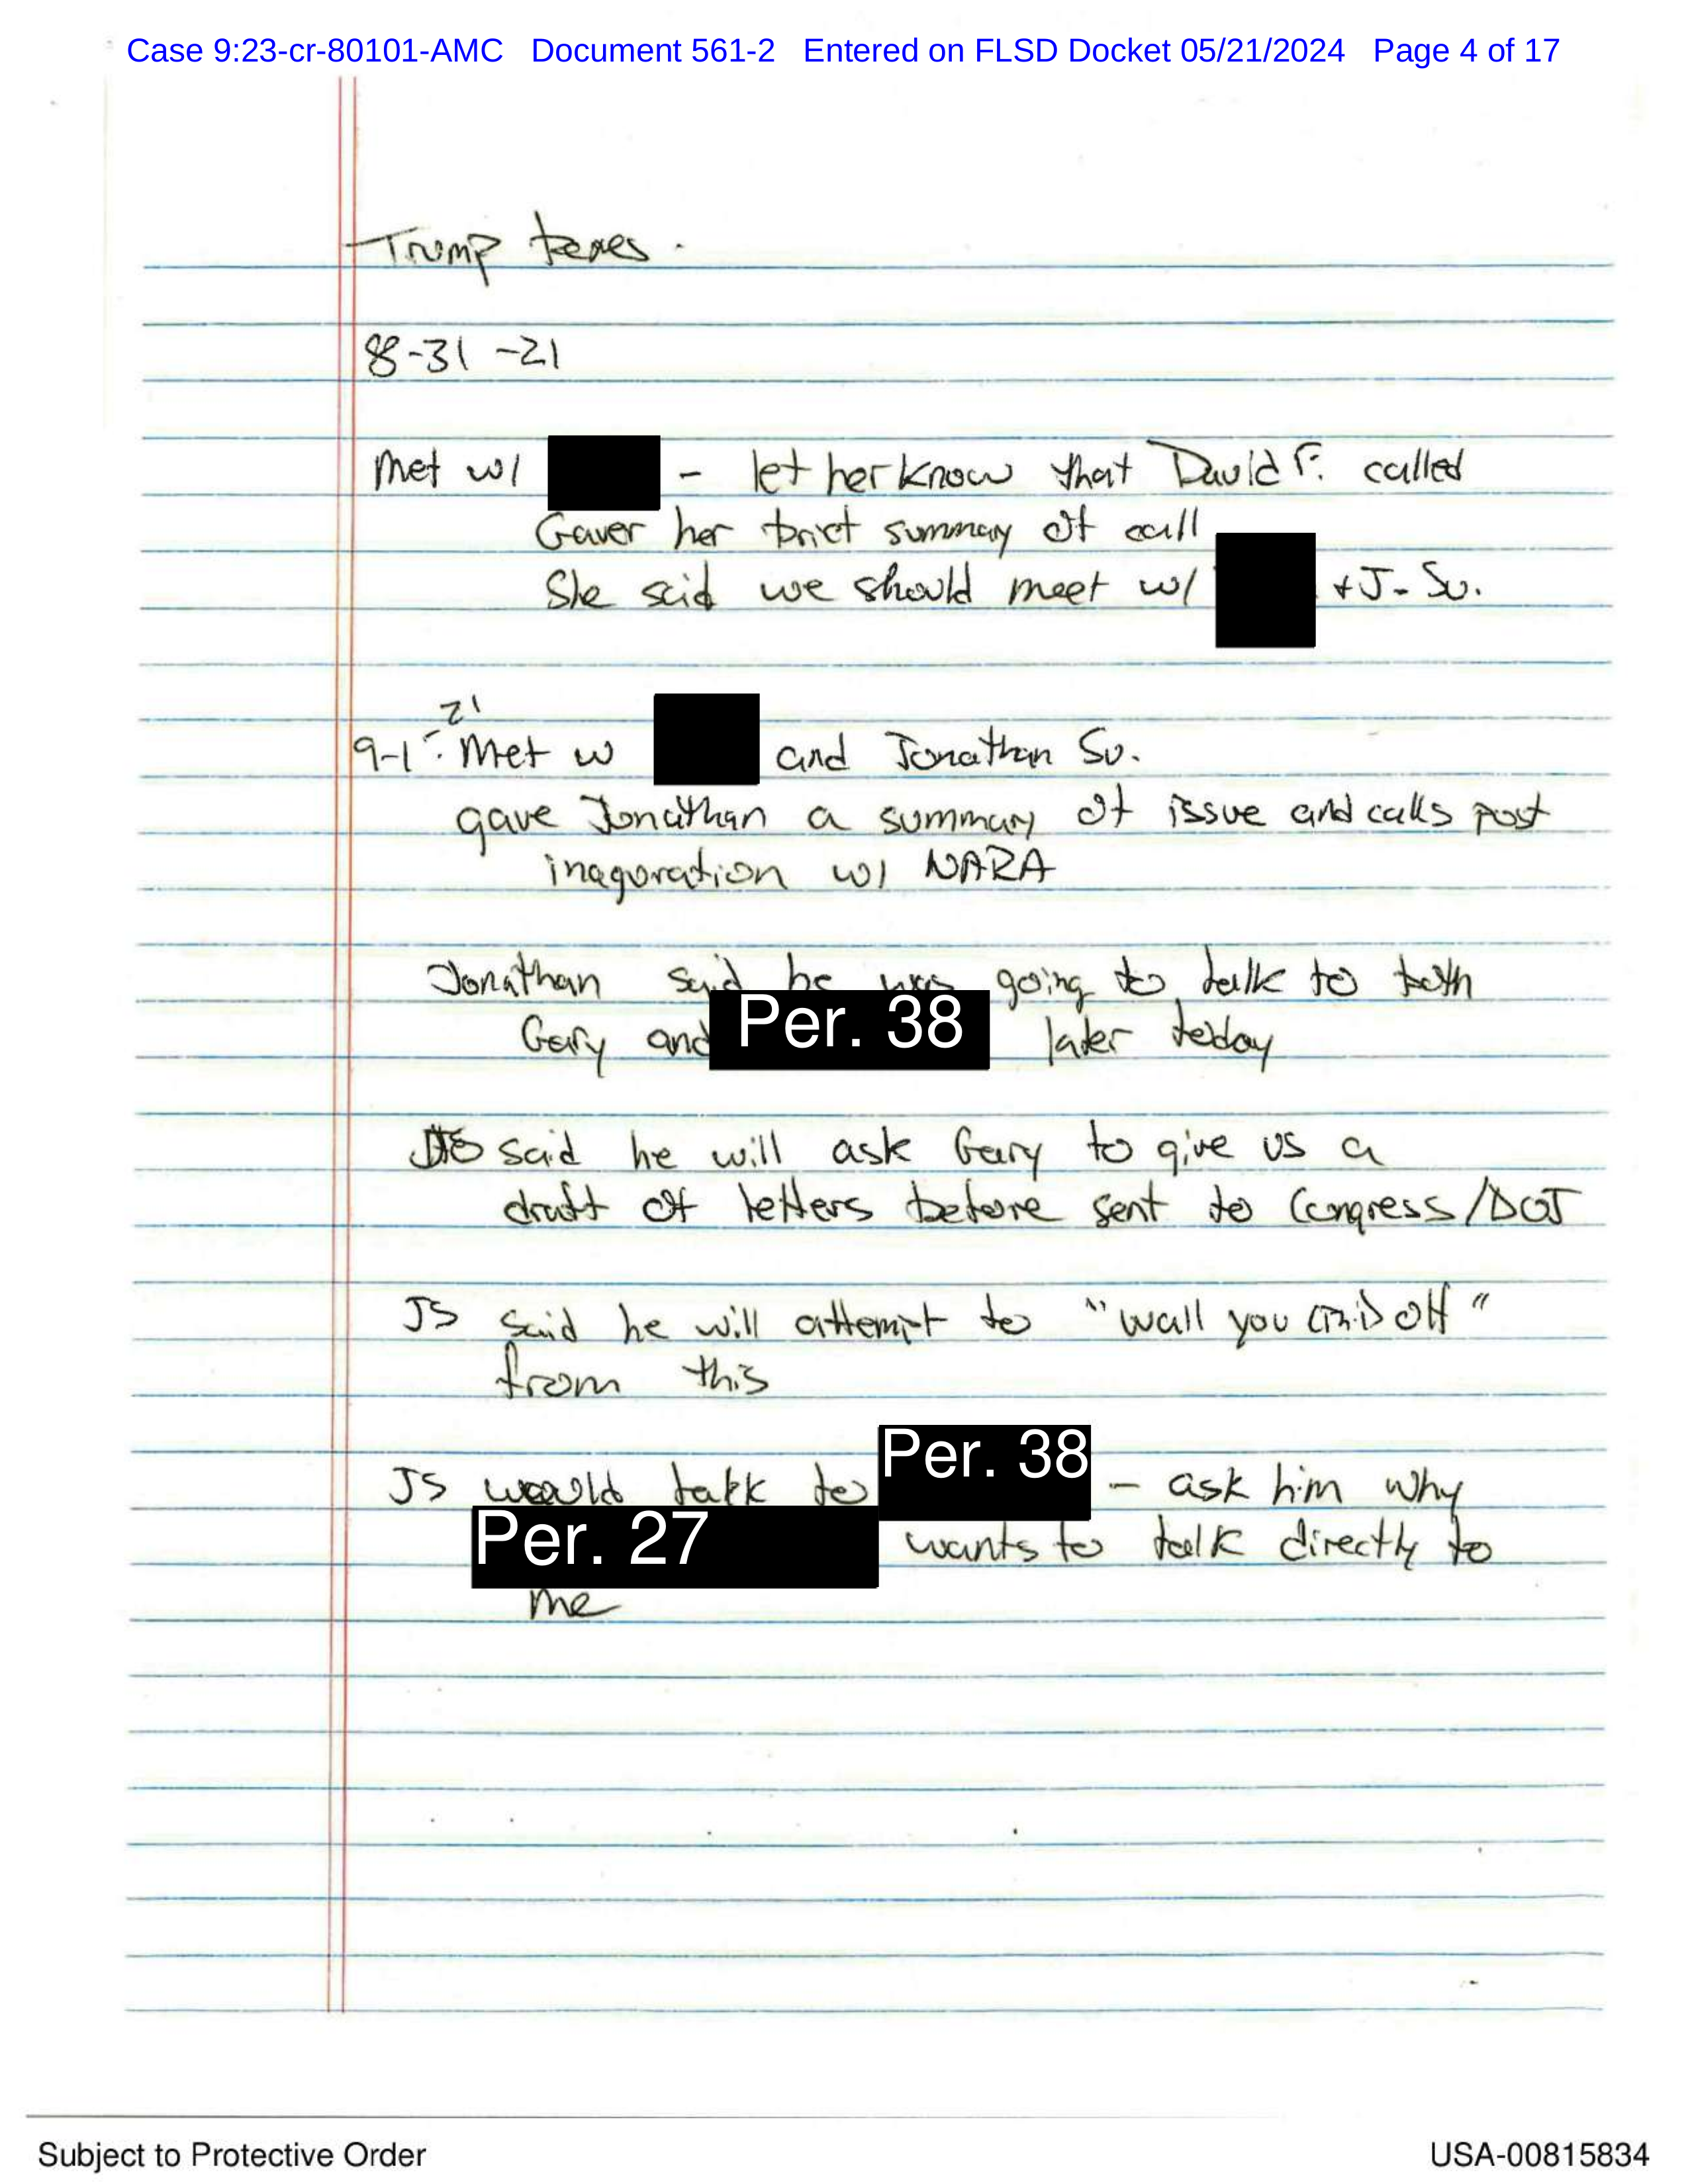 Case 9:23-cr-80101-AMC Document 561-2 Entered on FLSD Docket 05/21/2024 Page 4 of 17
Trump boxes.
8-31-21
Met w/ - let her know that David F. called
Gaver her brief summary of call
She said we should meet w/ + J. Su.
21
9-1 : Met w and Jonathan Su.
gave Jonathan a summary of issue and calls post
inaguration w/ NARA
Jonathan said he was going to talk to both
Gary and Per. 38 later today
JS said he will ask Gary to give us a
draft of letters before sent to Congress/DOJ
JS said he will attempt to "wall you off"
from this
JS would talk to Per. 38 - ask him why
Per. 27 wants to talk directly to
me
Subject to Protective Order
USA-00815834